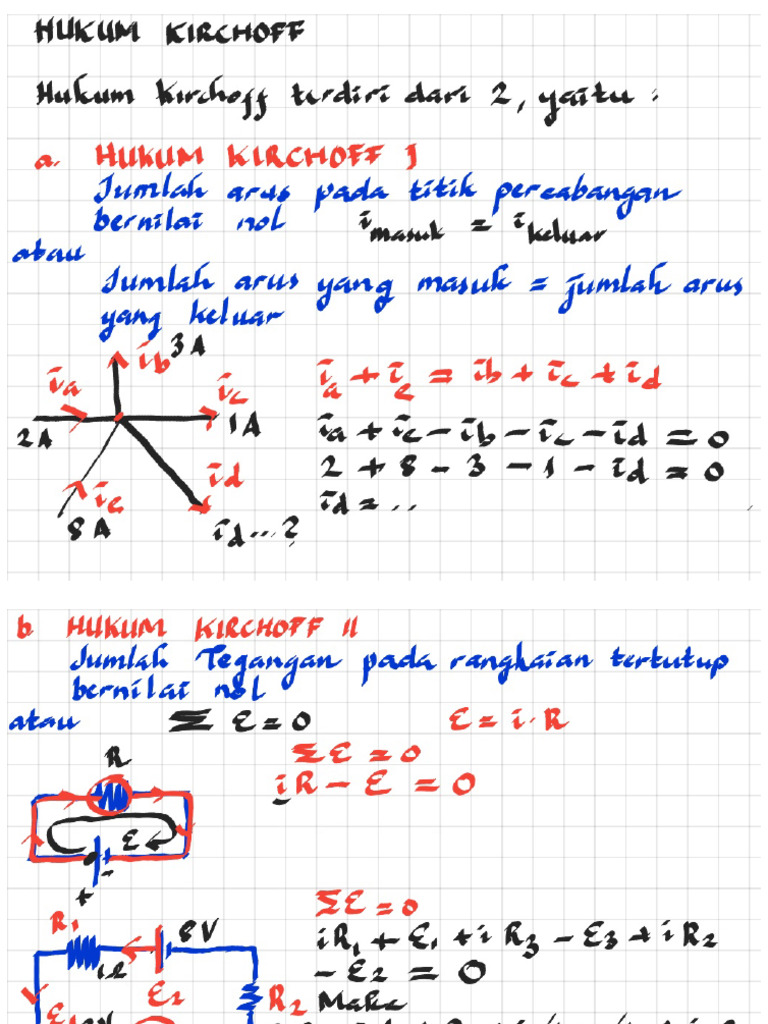 HUKUM KIRCHOFF
Hukum Kirchoff terdiri dari 2, yaitu :
a. HUKUM KIRCHOFF I
Jumlah arus pada titik percabangan
bernilai nol i masuk = i keluar
atau
Jumlah arus yang masuk = jumlah arus
yang keluar
ia ib 3A ic 1A
2A
id
ie
8A
id...?
ia + ie = ib + ic + id
ia + ic - ib - ic - id = 0
2 + 8 - 3 - 1 - id = 0
id = ..
b HUKUM KIRCHOFF II
Jumlah Tegangan pada rangkaian tertutup
bernilai nol
atau Σ ε = 0 ε = i.R
R
ε
+ -
Σε = 0
iR - ε = 0
R1 8V
1Ω
ε2
R2
Σε = 0
iR1 + ε1 + i R3 - ε3 + i R2
- ε2 = 0
Maka